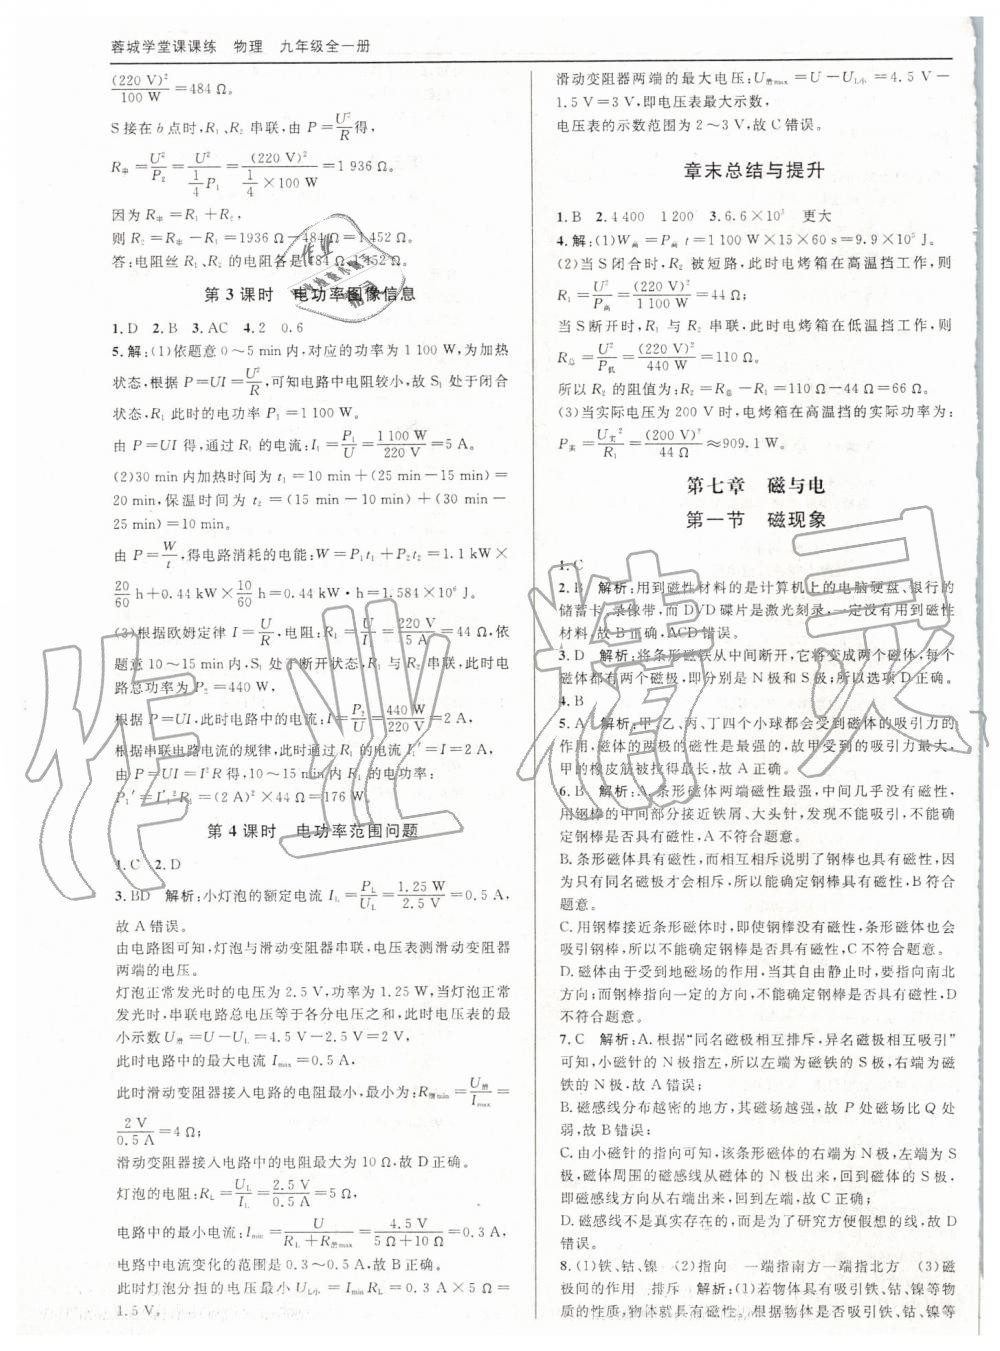 蓉城学堂课课练　物理　九年级全一册
(220 V)²/100 W=484 Ω。
S接在b点时,R₁、R₂串联,由P=U²/R得,
R串=U²/P₂=U²/(1/4 P₁)=(220 V)²/(1/4×100 W)=1 936 Ω。
因为R串=R₁+R₂,
则R₂=R串-R₁=1936 Ω-484 Ω=1 452 Ω。
答:电阻丝R₁、R₂的电阻各是484 Ω、1 452 Ω。
第3课时　电功率图像信息
1.D　2.B　3.AC　4.2　0.6
5.解:(1)依题意0～5 min内,对应的功率为1 100 W,为加热
状态,根据P=UI=U²/R,可知电路中电阻较小,故S₁处于闭合
状态,R₁此时的电功率P₁=1 100 W。
由P=UI得,通过R₁的电流:I₁=P₁/U=1 100 W/220 V=5 A。
(2)30 min内加热时间为t₁=10 min+(25 min-15 min)=
20 min,保温时间为t₂=(15 min-10 min)+(30 min-
25 min)=10 min。
由P=W/t,得电路消耗的电能:W=P₁t₁+P₂t₂=1.1 kW×
20/60 h+0.44 kW×10/60 h=0.44 kW·h=1.584×10⁶ J。
(3)根据欧姆定律I=U/R,电阻:R₁=U/I₁=220 V/5 A=44 Ω,依
题意10～15 min内,S₁处于断开状态,R₁与R₂串联,此时电
路总功率为P₂=440 W,
根据P=UI,此时电路中的电流:I₁′=P₂/U=440 W/220 V=2 A,
根据串联电路电流的规律,此时通过R₁的电流I₁′=I′=2 A,
由P=UI=I²R得,10～15 min内R₁的电功率:
P₁′=I′₁²R₁=(2 A)²×44 Ω=176 W。
第4课时　电功率范围问题
1.C　2.D
3.BD　解析:小灯泡的额定电流I_L=P_L/U_L=1.25 W/2.5 V=0.5 A,
故A错误。
由电路图可知,灯泡与滑动变阻器串联,电压表测滑动变阻器
两端的电压。
灯泡正常发光时的电压为2.5 V,功率为1.25 W,当灯泡正常发光时,
串联电路总电压等于各分电压之和,此时电压表的最
小示数U滑=U-U_L=4.5 V-2.5 V=2 V,
此时电路中的最大电流I_max=0.5 A,
此时滑动变阻器接入电路的电阻最小为:R滑min=U滑/I_max=
2 V/0.5 A=4 Ω;
滑动变阻器接入电路中的电阻最大为10 Ω,故D正确。
灯泡的电阻:R_L=U_L/I_L=2.5 V/0.5 A=5 Ω,
电路中的最小电流:I_min=U/(R_L+R滑max)=4.5 V/(5 Ω+10 Ω)=0.3 A,
电路中电流变化的范围是0.3～0.5 A,故B正确;
此时灯泡分担的电压最小U_L小=I_min R_L=0.3 A×5 Ω=
1.5 V,
滑动变阻器两端的最大电压:U滑max=U-U_L小=4.5 V-
1.5 V=3 V,即电压表最大示数,
电压表的示数范围为2～3 V,故C错误。
章末总结与提升
1.B　2.4 400　1 200　3.6.6×10⁵　更大
4.解:(1)W高=P高t=1 100 W×15×60 s=9.9×10⁵ J。
(2)当S闭合时,R₂被短路,此时电烤箱在高温挡工作,则
R₁=U²/P高=(220 V)²/1 100 W=44 Ω;
当S断开时,R₁与R₂串联,此时电烤箱在低温挡工作,则
R总=U²/P低=(220 V)²/440 W=110 Ω。
所以R₂的阻值为:R₂=R总-R₁=110 Ω-44 Ω=66 Ω。
(3)当实际电压为200 V时,电烤箱在高温挡的实际功率为:
P实=U实²/R₁=(200 V)²/44 Ω≈909.1 W。
第七章　磁与电
第一节　磁现象
1.C
2.B　解析:用到磁性材料的是计算机上的电脑硬盘、银行的
储蓄卡、录像带,而DVD碟片是激光刻录,一定没有用到磁性
材料,故B正确,ACD错误。
3.D　解析:将条形磁铁从中间断开,它将变成两个磁体,每个
磁体都有两个磁极,即分别是N极和S极;所以选项D正确。
4.B
5.A　解析:甲、乙、丙、丁四个小球都会受到磁体的吸引力的
作用,磁体的两极的磁性是最强的,故甲受到的吸引力最大,
甲的橡皮筋被拉得最长,故A正确。
6.B　解析:A.条形磁体两端磁性最强,中间几乎没有磁性,
用钢棒的中间部分接近铁屑、大头针,发现不能吸引,不能确
定钢棒是否具有磁性,A不符合题意。
B.条形磁体具有磁性,而且相互排斥说明了钢棒也有磁性,
只有同名磁极才会排斥,所以能确定钢棒具有磁性,B符合
题意。
C.用钢棒接近条形磁体时,即使钢棒没有磁性,条形磁体也会
吸引钢棒,所以不能确定钢棒是否具有磁性,C不符合题意。
D.磁体由于受到地磁场的作用,当其自由时,要指向南北
方向,而钢棒指向一定的方向,不能确定钢棒是否具有磁性,D
不符合题意。
7.C　解析:A.根据“同名磁极相互排斥,异名磁极相互吸引”
可知,小磁针的N极指左,所以左端为磁铁的S极,右端为磁
铁的N极,故A错误;
B.磁感线分布越密的地方,其磁场越强,故P处磁场比Q处
弱,故B错误;
C.由小磁针的指向可知,该条形磁体的右端为N极,左端为S
极;磁体周围的磁感线从磁体的N极出来,回到磁体的S极,
即磁感线方向从右端出来,回到左端,故C正确;
D.磁感线不是真实存在的,而是为了研究方便假想的线,故D
错误。
8.(1)铁、钴、镍　(2)指向　一端指南方一端指北方　(3)磁
极间的作用　排斥　解析:(1)若物体具有吸引铁、钴、镍等物
质的性质,物体就具有磁性。根据物体是否能吸引铁、钴、镍等